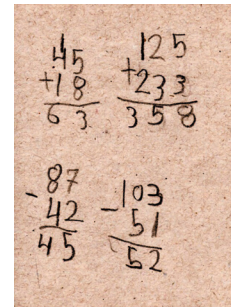 1
45
+18
63
125
+233
358
87
-42
45
103
-51
52